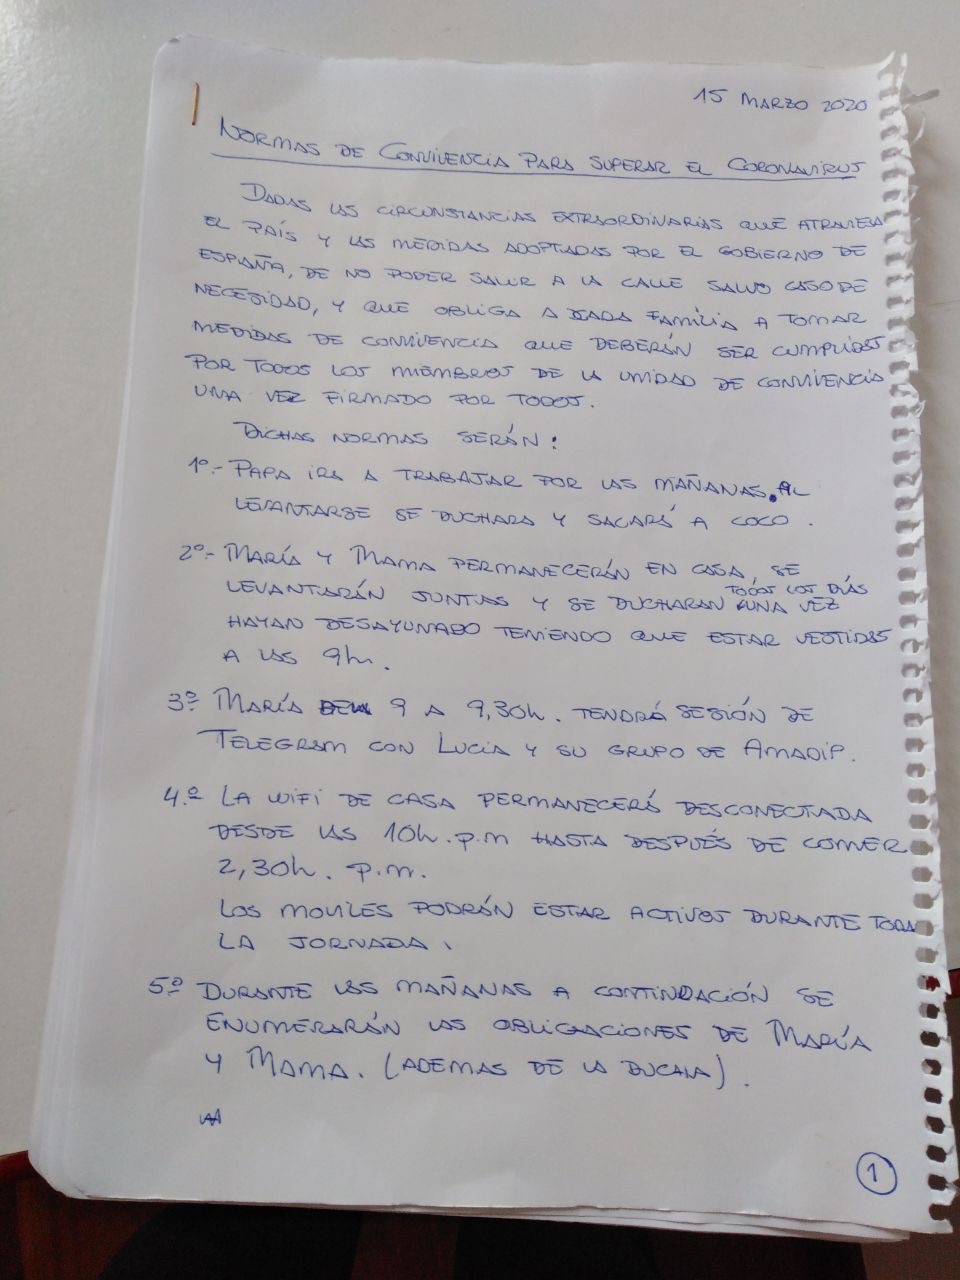 15 MARZO 2020
NORMAS DE CONVIVENCIA PARA SUPERAR EL CORONAVIRUS
DADAS LAS CIRCUNSTANCIAS EXTRAORDINARIAS QUE ATRAVIESA
EL PAÍS Y LAS MEDIDAS ADOPTADAS POR EL GOBIERNO DE
ESPAÑA, DE NO PODER SALIR A LA CALLE SALVO CASO DE
NECESIDAD, Y QUE OBLIGA A CADA FAMILIA A TOMAR
MEDIDAS DE CONVIVENCIA QUE DEBERÁN SER CUMPLIDAS
POR TODOS LOS MIEMBROS DE LA UNIDAD DE CONVIVENCIA
UNA VEZ FIRMADO POR TODOS.
DICHAS NORMAS SERÁN:
1º.- PAPA IRA A TRABAJAR POR LAS MAÑANAS. AL
LEVANTARSE SE DUCHARA Y SACARÁ A COCO.
2º.- MARÍA Y MAMA PERMANECERÁN EN CASA, SE
LEVANTARÁN JUNTAS Y SE DUCHARAN TODOS LOS DÍAS UNA VEZ
HAYAN DESAYUNADO TENIENDO QUE ESTAR VESTIDAS
A LAS 9h.
3º.- MARÍA DE 9 A 9,30h. TENDRÁ SESIÓN DE
TELEGRAM CON LUCÍA Y SU GRUPO DE AMADIP.
4.º LA WIFI DE CASA PERMANECERÁ DESCONECTADA
DESDE LAS 10h. p.m HASTA DESPUÉS DE COMER
2,30h. p.m.
LOS MOVILES PODRÁN ESTAR ACTIVOS DURANTE TODA
LA JORNADA.
5º.- DURANTE LAS MAÑANAS A CONTINUACIÓN SE
ENUMERARÁN LAS OBLIGACIONES DE MARÍA
Y MAMA. (ADEMAS DE LA DUCHA).
1